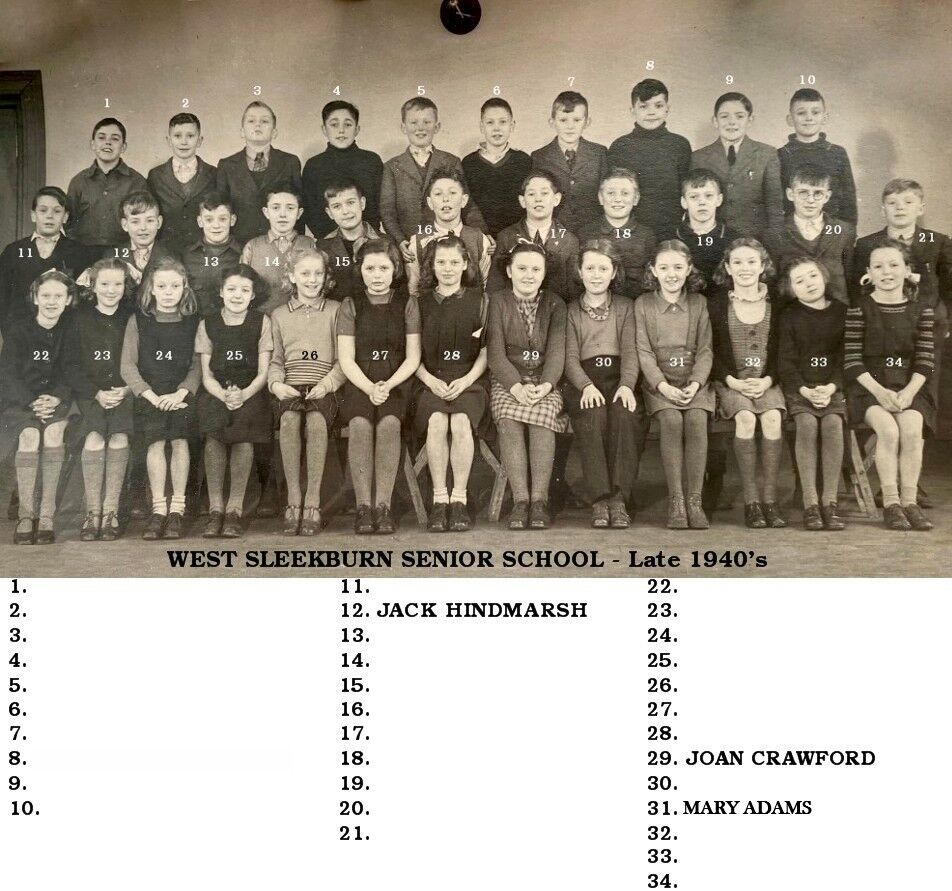 1 2 3 4 5 6 7 8 9 10
11 12 13 14 15 16 17 18 19 20 21
22 23 24 25 26 27 28 29 30 31 32 33 34
WEST SLEEKBURN SENIOR SCHOOL - Late 1940's
1.
2.
3.
4.
5.
6.
7.
8.
9.
10.
11.
12. JACK HINDMARSH
13.
14.
15.
16.
17.
18.
19.
20.
21.
22.
23.
24.
25.
26.
27.
28.
29. JOAN CRAWFORD
30.
31. MARY ADAMS
32.
33.
34.